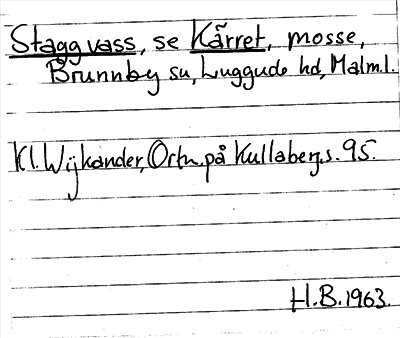 Staggvass, se Kärret, mosse,
Brunnby sn, Luggude hd, Malm.l.
Kl. Wijkander, Ortn. på Kullaberg, s. 95.
H.B. 1963.